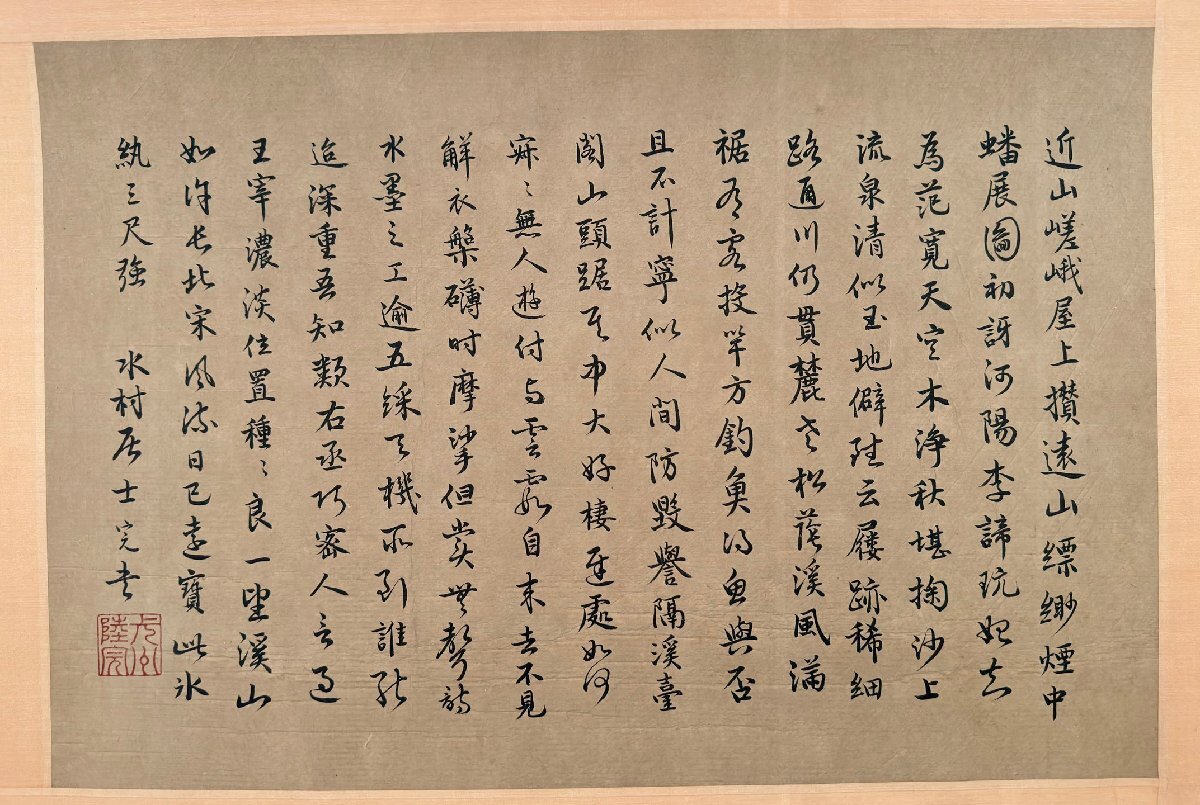 近山嵯峨屋上攢遠山縹緲煙中
蟠展圖初訝河陽李諦玩始知
為范寬天空木淨秋堪掬沙上
流泉清似玉地僻陸云屐跡稀細
路通川仍貫麓老松蔭溪風滿
裾有客投竿方釣魚得魚與否
且不計寧似人間防毀譽隔溪臺
閣山頭踞其中大好棲遲處如何
寂〻無人遊付与雲霞自来去不見
解衣槃礴时摩挲但賞無聲詩
水墨之工逾五綵天機所到誰能
追深重吾知類右丞巧密人言過
王宰濃淡位置種〻良一望溪山
如许长北宋風流日已遠寶此氷
紈三尺強 水村居士完书
陸完